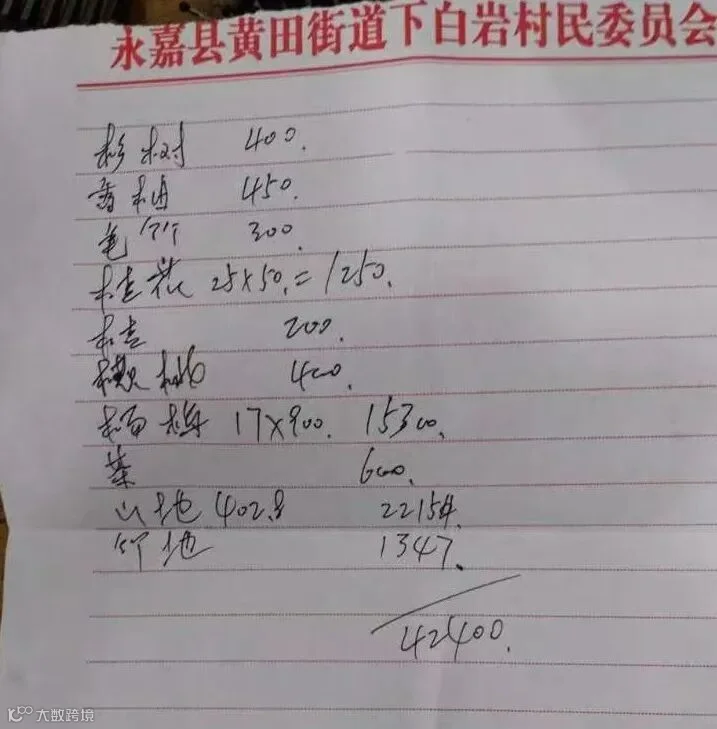 永嘉县黄田街道下白岩村民委员会
杉树 400.
香柚 450.
毛竹 300.
桂花 25×50.=1250.
桂 200.
桃 400.
杨梅 17×900. 15300.
茶 600.
山地 402.8 22154.
竹地 1347.
42400.
大数跨境